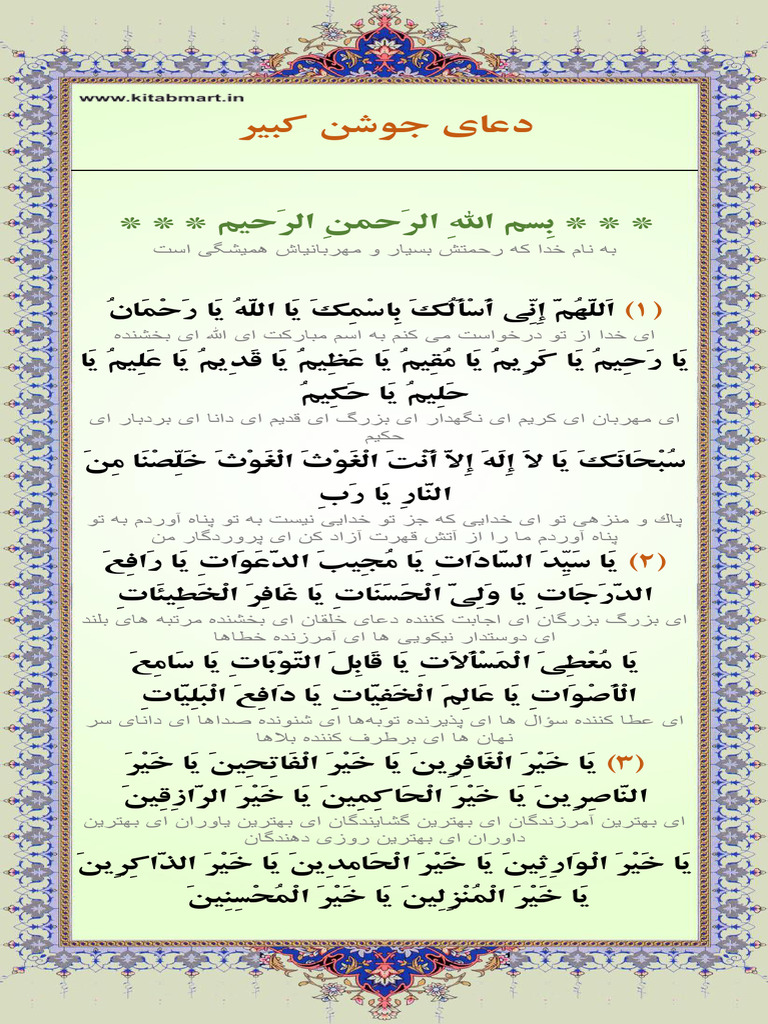 www.kitabmart.in
دعای جوشن کبیر
* * * بِسم اللهِ الرَحمنِ الرَحیم * * *
به نام خدا که رحمتش بسیار و مهربانیاش همیشگی است
(۱) اَللَّهُمَّ إِنِّی أَسْأَلُکَ بِاسْمِکَ یَا اللَّهُ یَا رَحْمَانُ
ای خدا از تو درخواست می کنم به اسم مبارکت ای الله ای بخشنده
یَا رَحِیمُ یَا کَرِیمُ یَا مُقِیمُ یَا عَظِیمُ یَا قَدِیمُ یَا عَلِیمُ یَا
حَلِیمُ یَا حَکِیمُ
ای مهربان ای کریم ای نگهدار ای بزرگ ای قدیم ای دانا ای بردبار ای
حکیم
سُبْحَانَکَ یَا لاَ إِلَهَ إِلاَّ أَنْتَ الْغَوْثَ الْغَوْثَ خَلِّصْنَا مِنَ
النَّارِ یَا رَبِ
پاك و منزهی تو ای خدایی که جز تو خدایی نیست به تو پناه آوردم به تو
پناه آوردم ما را از آتش قهرت آزاد کن ای پروردگار من
(۲) یَا سَیِّدَ السَّادَاتِ یَا مُجِیبَ الدَّعَوَاتِ یَا رَافِعَ
الدَّرَجَاتِ یَا وَلِیَّ الْحَسَنَاتِ یَا غَافِرَ الْخَطِیئَاتِ
ای بزرگ بزرگان ای اجابت کننده دعای خلقان ای بخشنده مرتبه های بلند
ای دوستدار نیکویی ها ای آمرزنده خطاها
یَا مُعْطِیَ الْمَسْأَلاَتِ یَا قَابِلَ التَّوْبَاتِ یَا سَامِعَ
الْأَصْوَاتِ یَا عَالِمَ الْخَفِیَّاتِ یَا دَافِعَ الْبَلِیَّاتِ
ای عطا کننده سؤال ها ای پذیرنده توبه‌ها ای شنونده صداها ای دانای سر
نهان ها ای برطرف کننده بلاها
(۳) یَا خَیْرَ الْغَافِرِینَ یَا خَیْرَ الْفَاتِحِینَ یَا خَیْرَ
النَّاصِرِینَ یَا خَیْرَ الْحَاکِمِینَ یَا خَیْرَ الرَّازِقِینَ
ای بهترین آمرزندگان ای بهترین گشایندگان ای بهترین یاوران ای بهترین
داوران ای بهترین روزی دهندگان
یَا خَیْرَ الْوَارِثِینَ یَا خَیْرَ الْحَامِدِینَ یَا خَیْرَ الذَّاکِرِینَ
یَا خَیْرَ الْمُنْزِلِینَ یَا خَیْرَ الْمُحْسِنِینَ